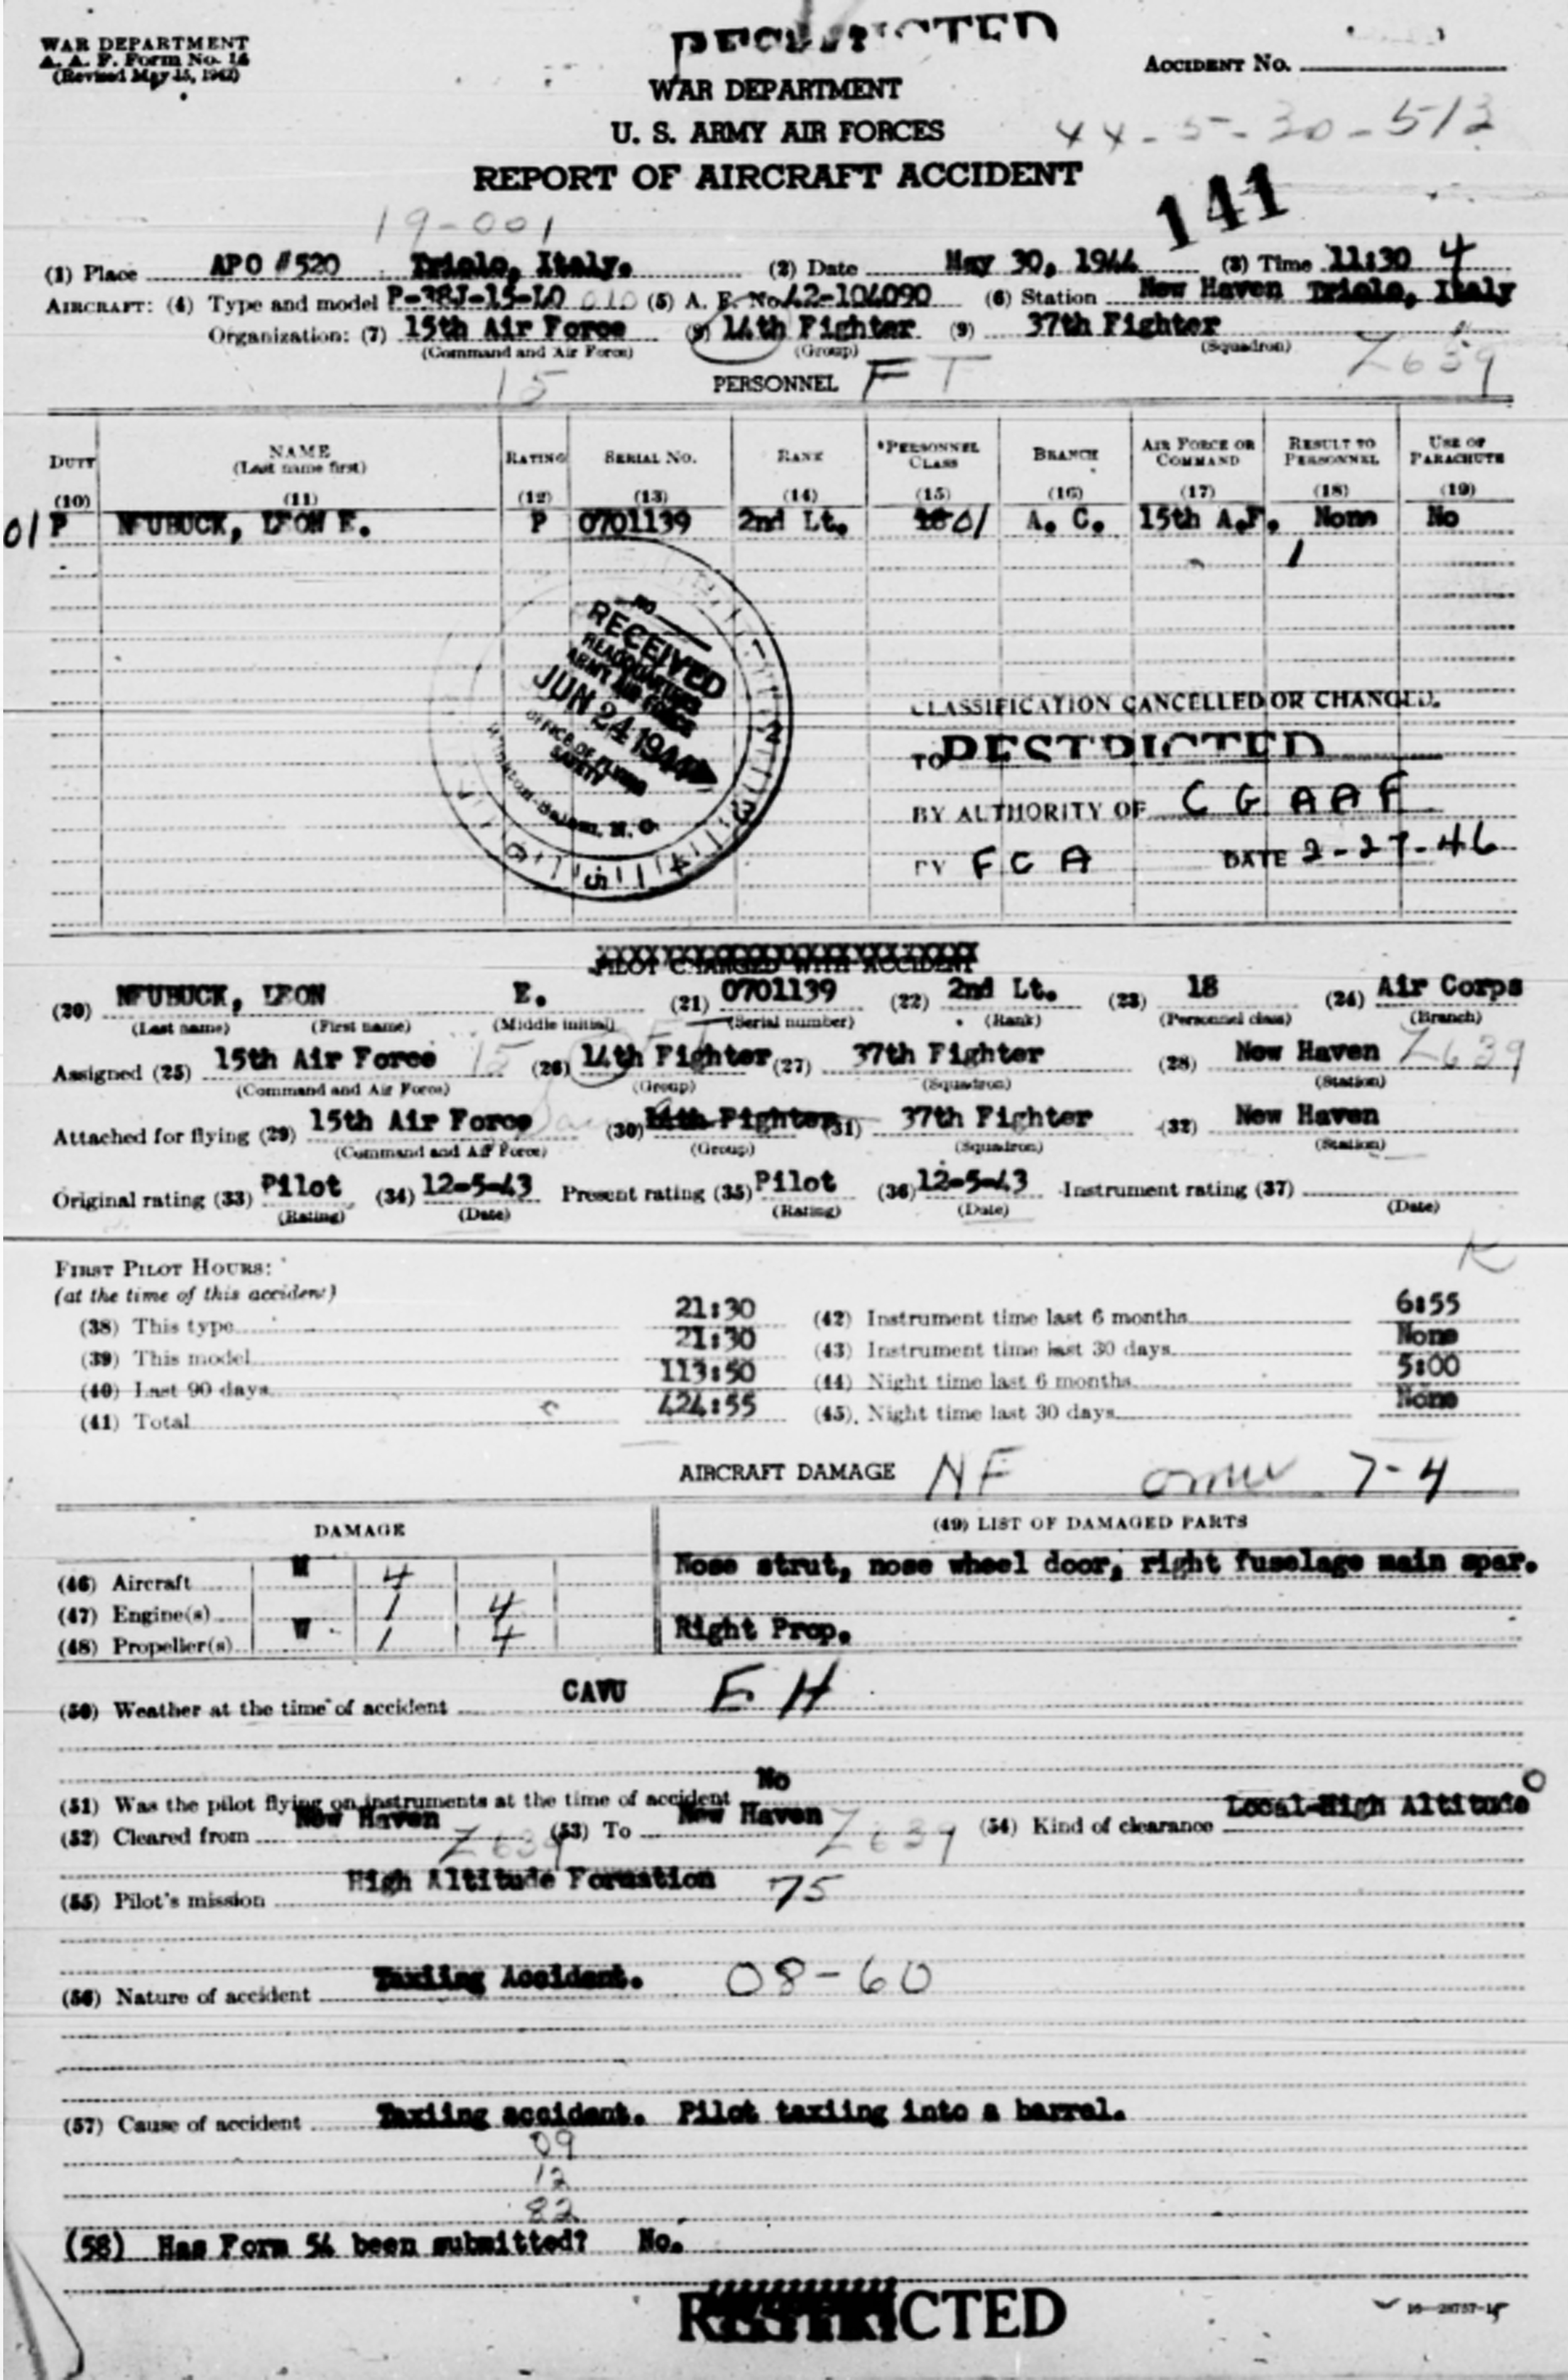 WAR DEPARTMENT
A. A. F. Form No. 14
(Revised May 15, 1942)
RESTRICTED
WAR DEPARTMENT
U. S. ARMY AIR FORCES
REPORT OF AIRCRAFT ACCIDENT
ACCIDENT No.
44-5-30-513
141
19-001
(1) Place APO #520 Triolo, Italy. (2) Date May 30, 1944 (3) Time 11:30 4
AIRCRAFT: (4) Type and model P-38J-15-LO 010 (5) A. F. No. 42-104090 (6) Station New Haven Triolo, Italy
Organization: (7) 15th Air Force (8) 14th Fighter (9) 37th Fighter
(Command and Air Force) (Group) (Squadron)
15 PERSONNEL F T Z639
DUTY NAME (Last name first) RATING SERIAL No. RANK *PERSONNEL CLASS BRANCH AIR FORCE OR COMMAND RESULT TO PERSONNEL USE OF PARACHUTE
(10) (11) (12) (13) (14) (15) (16) (17) (18) (19)
01 P NEUBUCK, LEON E. P 0701139 2nd Lt. 18 01 A. C. 15th A.F. None No
1
RECEIVED
HEADQUARTERS
ARMY AIR FORCE
JUN 24 1944
OFFICE OF FLYING
SAFETY
Winston-Salem, N. C.
CLASSIFICATION CANCELLED OR CHANGED.
TO RESTRICTED
BY AUTHORITY OF C G AAF
BY FCA DATE 2-27-46
PILOT CHARGED WITH ACCIDENT
(20) NEUBUCK, LEON E. (21) 0701139 (22) 2nd Lt. (23) 18 (24) Air Corps
(Last name) (First name) (Middle initial) (Serial number) (Rank) (Personnel class) (Branch)
Assigned (25) 15th Air Force 15 (26) 14th Fighter (27) 37th Fighter (28) New Haven Z639
(Command and Air Force) (Group) (Squadron) (Station)
Attached for flying (29) 15th Air Force (30) 14th Fighter (31) 37th Fighter (32) New Haven
(Command and Air Force) (Group) (Squadron) (Station)
Original rating (33) Pilot (34) 12-5-43 Present rating (35) Pilot (36) 12-5-43 Instrument rating (37)
(Rating) (Date) (Rating) (Date) (Date)
K
FIRST PILOT HOURS:
(at the time of this accident)
(38) This type 21:30 (42) Instrument time last 6 months 6:55
(39) This model 21:30 (43) Instrument time last 30 days None
(40) Last 90 days 113:50 (44) Night time last 6 months 5:00
(41) Total 424:55 (45) Night time last 30 days None
AIRCRAFT DAMAGE NF 7-4
DAMAGE (49) LIST OF DAMAGED PARTS
(46) Aircraft M 4 Nose strut, nose wheel door, right fuselage main spar.
(47) Engine(s) 1 4
(48) Propeller(s) W 1 4 Right Prop.
(50) Weather at the time of accident CAVU E H
(51) Was the pilot flying on instruments at the time of accident No
(52) Cleared from New Haven Z639 (53) To New Haven Z639 (54) Kind of clearance Local-High Altitude 0
(55) Pilot's mission High Altitude Formation 75
(56) Nature of accident Taxiing Accident. 08-60
(57) Cause of accident Taxiing accident. Pilot taxiing into a barrel.
09
12
82
(58) Has Form 54 been submitted? No.
RESTRICTED